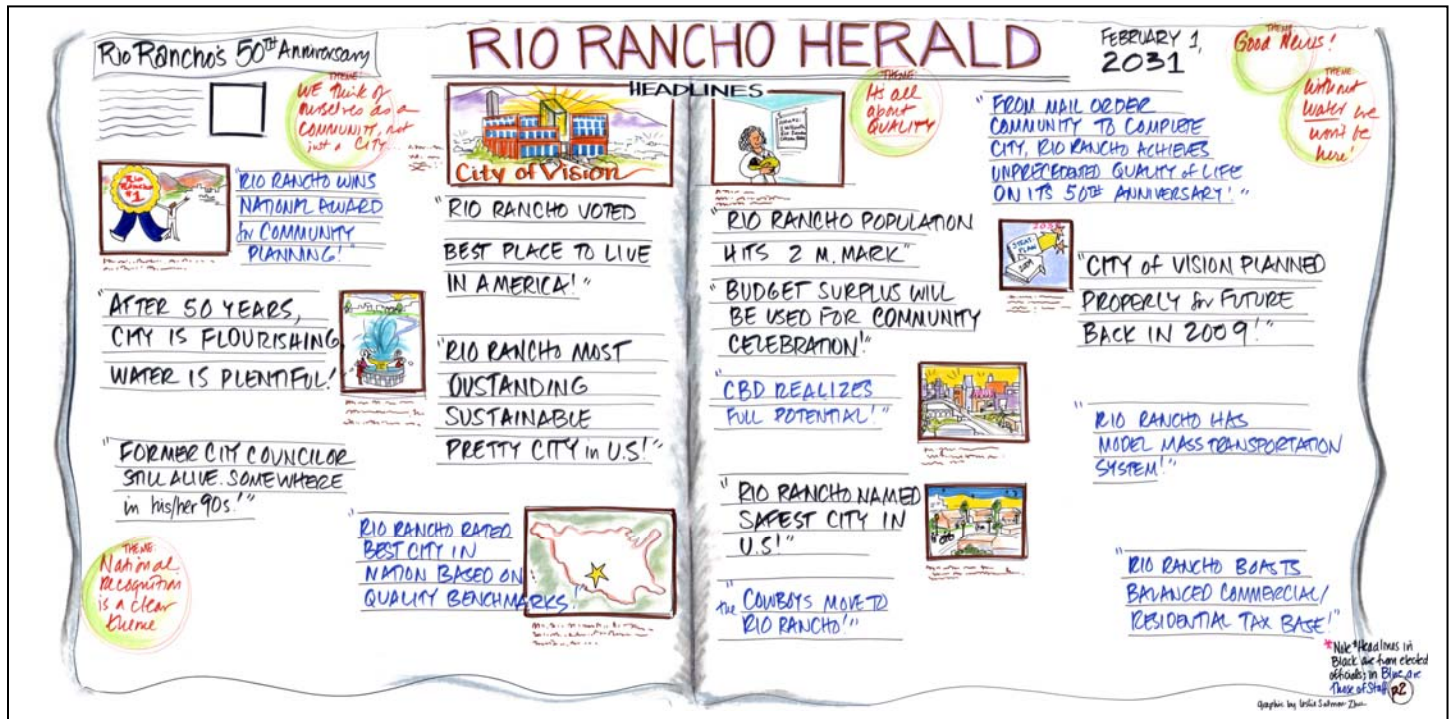 Rio Rancho's 50TH Anniversary
RIO RANCHO HERALD
FEBRUARY 1,
2031
THEME:
Good News!
THEME:
WE think of
ourselves as a
COMMUNITY, not
just a CITY...
HEADLINES
THEME:
It's all
about
QUALITY
THEME:
Without
Water we
won't be
here!
Rio
Rancho
#1
"RIO RANCHO WINS
NATIONAL AWARD
for COMMUNITY
PLANNING!"
"AFTER 50 YEARS,
CITY IS FLOURISHING
WATER IS PLENTIFUL!"
"FORMER CITY COUNCILOR
STILL ALIVE. SOMEWHERE
in his/her 90s!"
THEME:
National
recognition
is a clear
theme
City of Vision
"RIO RANCHO VOTED
BEST PLACE TO LIVE
IN AMERICA!"
"RIO RANCHO MOST
OUSTANDING
SUSTAINABLE
PRETTY CITY in U.S!"
"RIO RANCHO RATED
BEST CITY IN
NATION BASED ON
QUALITY BENCHMARKS!"
"RIO RANCHO POPULATION
HITS 2 M. MARK"
"BUDGET SURPLUS WILL
BE USED FOR COMMUNITY
CELEBRATION!"
"CBD REALIZES
FULL POTENTIAL!"
"RIO RANCHO NAMED
SAFEST CITY IN
U.S!"
"the COWBOYS MOVE TO
RIO RANCHO!"
"FROM MAIL ORDER
COMMUNITY TO COMPLETE
CITY, RIO RANCHO ACHIEVES
UNPRECEDENTED QUALITY of LIFE
ON ITS 50TH ANNIVERSARY!"
STRAT.
PLAN
"CITY of VISION PLANNED
PROPERLY for FUTURE
BACK IN 2009!"
"RIO RANCHO HAS
MODEL MASS TRANSPORTATION
SYSTEM!"
"RIO RANCHO BOASTS
BALANCED COMMERCIAL/
RESIDENTIAL TAX BASE!"
*Note *Headlines in
Black are from elected
officials; in Blue are
those of Staff p2
Graphic by Leslie